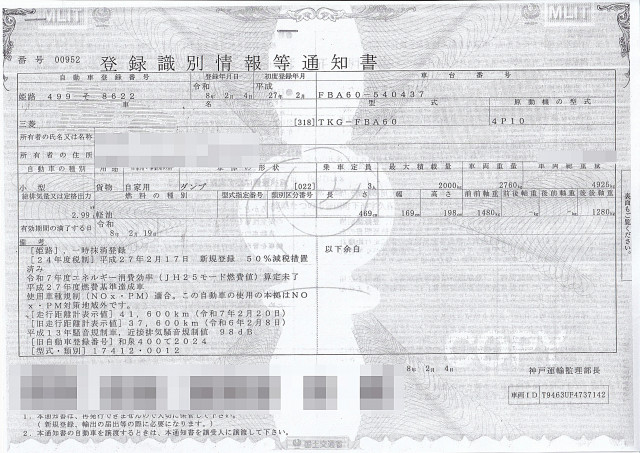 MLIT
番号 00952
登録識別情報等通知書
自動車登録番号 登録年月日 初度登録年月 車台番号
令和 平成
姫路 499 そ 8622 8年 2月 4日 27年 2月 FBA60-540437
車名 型式 原動機の型式
三菱 [318] TKG-FBA60 4P10
所有者の氏名又は名称
所有者の住所
自動車の種別 用途 車体の形状 乗車定員 最大積載量 車両重量 車両総重量
小型 貨物 自家用 ダンプ [022] 3人 2000kg 2760kg 4925kg
総排気量又は定格出力 燃料の種別 型式指定番号 類別区分番号 長さ 幅 高さ 前前軸重 前後軸重 後前軸重 後後軸重
2.99 軽油 469cm 169cm 198cm 1480kg -kg -kg 1280kg
有効期間の満了する日
8年 2月 19日
備考
[姫路], 一時抹消登録
以下余白
[24年度税制] 平成27年2月17日 新規登録 50%減税措置
済み
令和7年度エネルギー消費効率(JH25モード燃費値)算定未了
平成27年度燃費基準達成車
使用車種規制(NOx・PM)適合。この自動車の使用の本拠はNO
x・PM対策地域外です。
[走行距離計表示値] 41,600km(令和7年2月20日)
[旧走行距離計表示値] 37,600km(令和6年2月8日)
平成13年騒音規制車, 近接排気騒音規制値 98dB
[旧自動車登録番号] 和泉400て2024
[型式・類別] 17412・0012
COPY
8年 2月 4日 神戸運輸監理部長
車両ID T9463UF4737142
1. 本通知書は、再発行できませんので大切に保管して下さい。
(新規登録、輸出の届出等の際に必要になります。)
2. 本通知書の自動車を譲渡するときは、本通知書を譲受人に譲渡して下さい。
裏面もご覧ください。
国土交通省